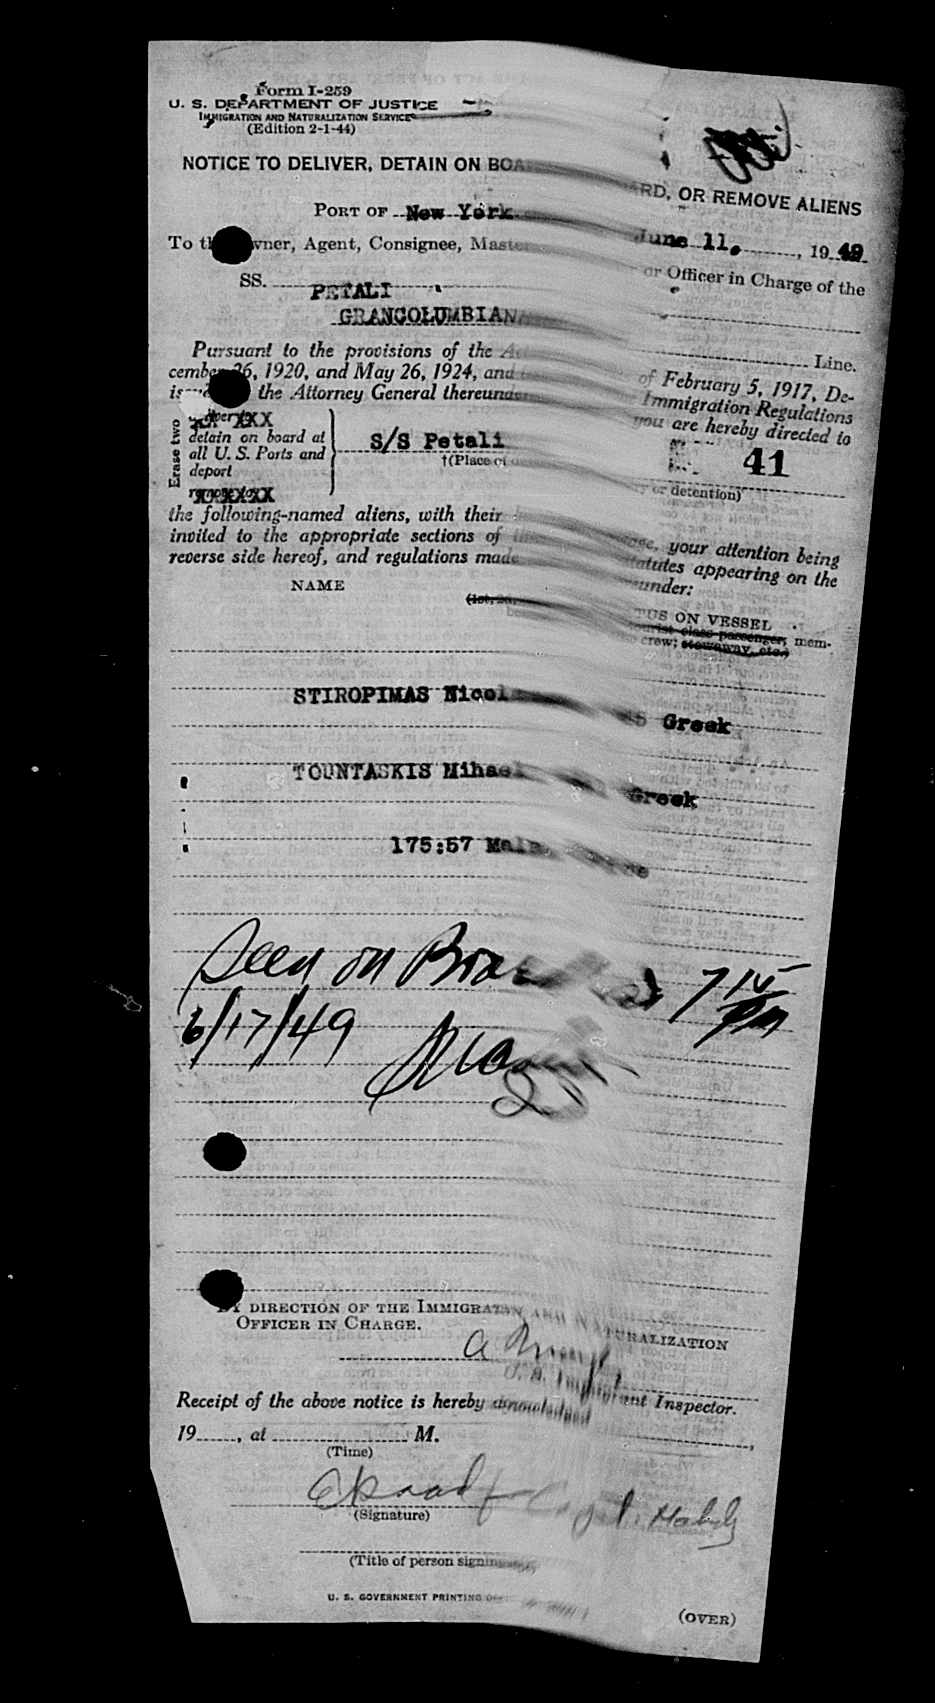 Form I-259
U. S. DEPARTMENT OF JUSTICE
IMMIGRATION AND NATURALIZATION SERVICE
(Edition 2-1-44)
NOTICE TO DELIVER, DETAIN ON BOARD, OR REMOVE ALIENS
PORT OF New York. June 11, 1949
To the Owner, Agent, Consignee, Master or Officer in Charge of the
SS. PETALI
GRANCOLUMBIAN Line.
Pursuant to the provisions of the of February 5, 1917, De-
cember 26, 1920, and May 26, 1924, and Immigration Regulations
the Attorney General thereunder you are hereby directed to
Erase two
XX XXX
detain on board at
all U. S. Ports and
deport
XXXXXX
S/S Petali 41
†(Place of detention)
the following-named aliens, with their your attention being
invited to the appropriate sections of statutes appearing on the
reverse side hereof, and regulations made
NAME
ON VESSEL
tourist class passenger; mem-
crew; stowaway, etc.)
STIROPIMAS Nicol Greek
TOUNTASKIS Mihael Greek
175:57
Seen on Board 7 15 pm
6/17/49
BY DIRECTION OF THE IMMIGRATION AND NATURALIZATION
OFFICER IN CHARGE.
U. S. Immigrant Inspector.
Receipt of the above notice is hereby acknowledged
19, at M.
(Time)
(Signature)
(Title of person signing)
U. S. GOVERNMENT PRINTING
(OVER)